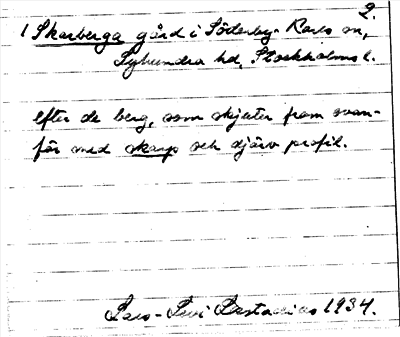 2.
1 Skarberga gård i Söderby-Karls sn,
Lyhundra hd, Stockholms l.
efter de berg, som skjuter fram ovan-
för med skarp och djärv profil.
Lars-Levi Læstadius 1934.